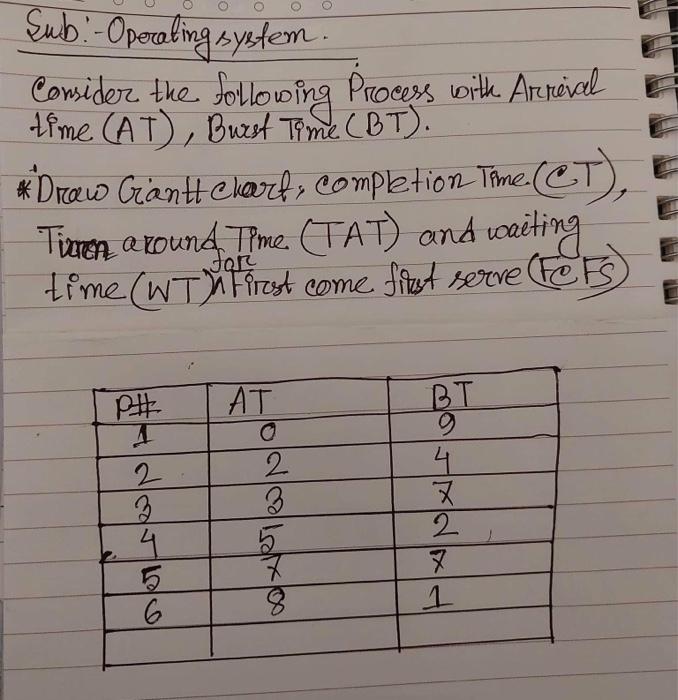 Sub:- Operating system.
Consider the following Process with Arrival
time (AT), Burst Time (BT).
* Draw Giantt chart, completion Time. (CT),
Turn around Time (TAT) and waiting
for
time (WT) ^ First come first serve (FCFS)
P# AT BT
1 0 9
2 2 4
3 3 7
4 5 2
5 7 7
6 8 1